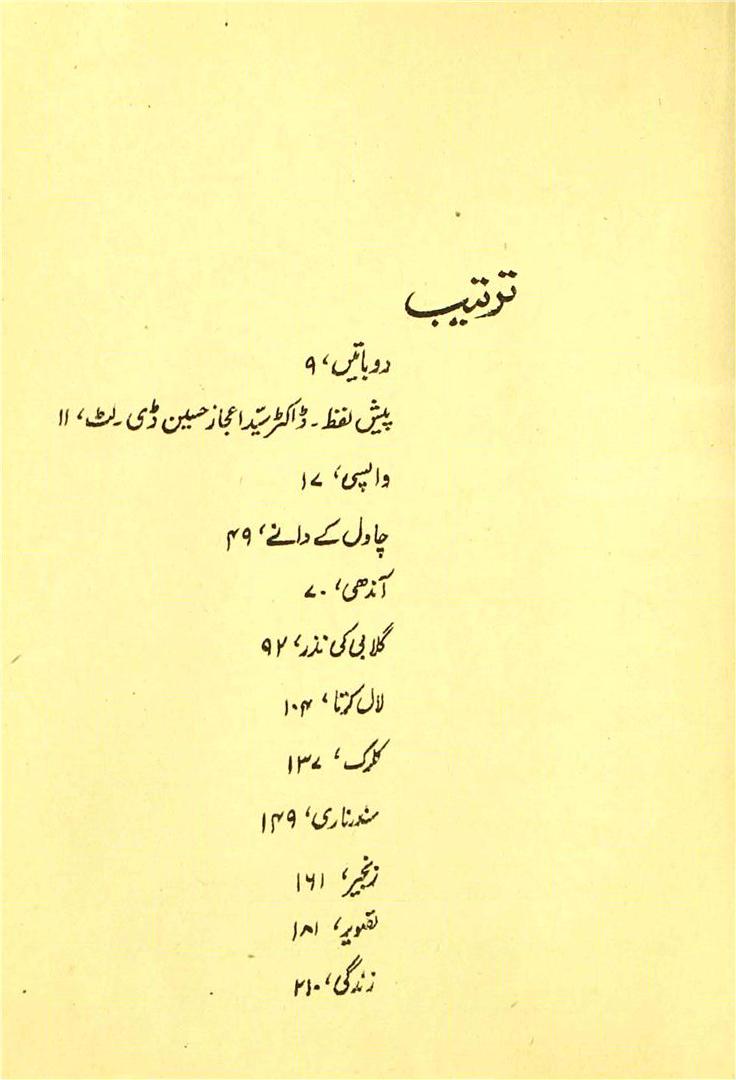 ترتیب
دو باتیں، ۹
پیش لفظ۔ ڈاکٹر سیّد اعجاز حسین ڈی۔ لٹ، ۱۱
واپسی، ۱۷
چاول کے دانے، ۴۹
آندھی، ۷۰
گلابی کی نذر، ۹۲
لال کرتا، ۱۰۴
کلرک، ۱۳۷
سندر ناری، ۱۴۹
زنجیر، ۱۶۱
تصویر، ۱۸۱
زندگی، ۲۱۰